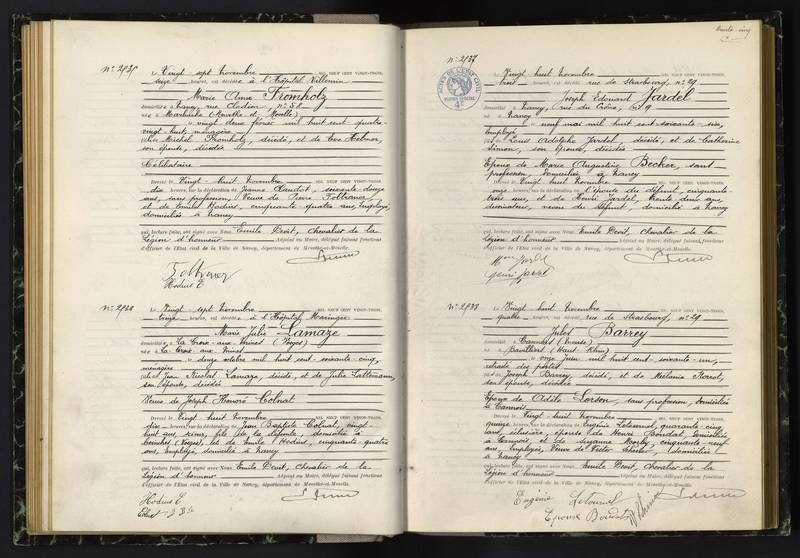 N° 2135
Le Vingt-sept novembre MIL NEUF CENT VINGT-TROIS,
seize heures, est décédée à l'Hôpital Villemin
Marie Anne Fromholz
domiciliée à Nancy, rue
née à (Meurthe et Moselle)
le vingt deux février mil huit cent quatre-
vingt-huit, ménagère
fille de Michel Fromholz, décédé, et de Eve
son épouse, décédée
Célibataire
Dressé le Vingt-huit novembre MIL NEUF CENT VINGT-TROIS,
dix heures, sur la déclaration de Jeanne soixante-douze
ans, sans profession, Veuve de Pierre
et de Emile Hodius, cinquante-quatre ans, employé,
domiciliés à Nancy
qui, lecture faite, ont signé avec Nous Emile Devit, Chevalier de la
Légion d'honneur Adjoint au Maire, délégué faisant fonctions
d'officier de l'État civil de la Ville de Nancy, département de Meurthe-et-Moselle.
Hodius E
Le Vingt-sept novembre MIL NEUF CENT VINGT-TROIS,
heures, est décédée à l'Hôpital Maringer
Marie Julie Lamaze
domiciliée à La Croix-aux-Mines (Vosges)
née à La Croix-aux-Mines
le douze octobre mil huit cent soixante-cinq,
ménagère
fille de Jean Nicolas Lamaze, décédé, et de Julie
son épouse, décédée
Veuve de Joseph Honoré Colnat
Dressé le Vingt-huit novembre MIL NEUF CENT VINGT-TROIS,
dix heures, sur la déclaration de Jean Baptiste Colnat, vingt-
huit ans, fils de la défunte, domicilié à
(Vosges), et de Emile Hodius, cinquante-quatre
ans, employé, domicilié à Nancy
qui, lecture faite, ont signé avec Nous Emile Devit, Chevalier de la
Légion d'honneur Adjoint au Maire, délégué faisant fonctions
d'officier de l'État civil de la Ville de Nancy, département de Meurthe-et-Moselle.
Hodius E
N° 2137
Le Vingt-huit novembre MIL NEUF CENT VINGT-TROIS,
huit heures, est décédé rue de Strasbourg, n° 29
Joseph Edouard Jardel
domicilié à Nancy, rue du
né à Nancy
le neuf mai mil huit cent soixante-six,
employé
fils de Louis Adolphe Jardel, décédé, et de Catherine
Simon, son épouse, décédée
Epoux de Marie Augustine Becker, sans
profession, domiciliée à Nancy
Dressé le Vingt-huit novembre MIL NEUF CENT VINGT-TROIS,
onze heures, sur la déclaration de l'épouse du défunt, cinquante-
trois ans, et de Henri Jardel, trente deux ans,
dessinateur, neveu du défunt, domicilié à Nancy
qui, lecture faite, ont signé avec Nous Emile Devit, Chevalier de la
Légion d'honneur Adjoint au Maire, délégué faisant fonctions
d'officier de l'État civil de la Ville de Nancy, département de Meurthe-et-Moselle.
Mme Jardel
Henri Jardel
N° 2138
Le Vingt-huit novembre MIL NEUF CENT VINGT-TROIS,
quatre heures, est décédé rue de Strasbourg, n° 29
Jules Barrey
domicilié à
né à Bavilliers (Haut-Rhin)
le onze juin mil huit cent soixante-un,
retraité des postes
fils de Joseph Barrey, décédé, et de Mélanie
son épouse, décédée
Epoux de Adèle Lerson, sans profession, domiciliée
à
Dressé le Vingt-huit novembre MIL NEUF CENT VINGT-TROIS,
quinze heures, sur la déclaration de Eugénie Letournel, quarante-cinq
ans, épouse de Henri Boudal, domiciliée
à et de Suzanne cinquante-neuf
ans, employée, Veuve de Victor domiciliée
à Nancy
qui, lecture faite, ont signé avec Nous Emile Devit, Chevalier de la
Légion d'honneur Adjoint au Maire, délégué faisant fonctions
d'officier de l'État civil de la Ville de Nancy, département de Meurthe-et-Moselle.
Eugénie Letournel
Epouse Boudal